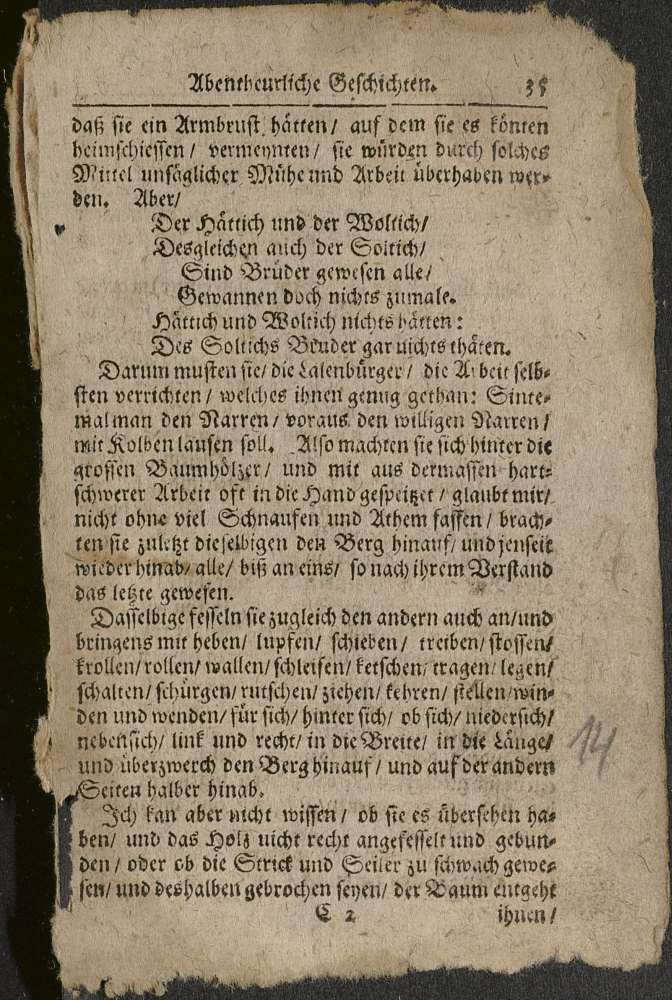 Abentheurliche Geschichten. 35
daß sie ein Armbrust hätten / auf dem sie es könten
heimschiessen / vermeynten / sie würden durch solches
Mittel unsäglicher Mühe und Arbeit überhaben wer-
den. Aber /
Der Hättich und der Woltich /
Desgleichen auch der Soltich /
Sind Brüder gewesen alle /
Gewannen doch nichts zumale.
Hättich und Woltich nichts hätten:
Des Soltichs Bruder gar nichts thäten.
Darum musten sie / die Lalenbürger / die Arbeit selb-
sten verrichten / welches ihnen genug gethan: Sinte-
mal man den Narren / voraus den willigen Narren /
mit Kolben lausen soll. Also machten sie sich hinter die
grossen Baumhölzer / und mit aus dermassen hart-
schwerer Arbeit oft in die Hand gespeitzet / glaubt mir /
nicht ohne viel Schnaufen und Athem fassen / brach-
ten sie zuletzt dieselbigen den Berg hinauf / und jenseit
wieder hinab / alle / biß an eins / so nach ihrem Verstand
das letzte gewesen.
Dasselbige fesseln sie zugleich den andern auch an / und
bringens mit heben / lupfen / schieben / treiben / stossen /
krollen / rollen / wallen / schleifen / ketschen / tragen / legen /
schalten / schürgen / rutschen / ziehen / kehren / stellen / win-
den und wenden / für sich / hinter sich / ob sich / niedersich /
nebensich / link und recht / in die Breite / in die Länge /
und überzwerch den Berg hinauf / und auf der andern
Seiten halber hinab.
Ich kan aber nicht wissen / ob sie es übersehen ha-
ben / und das Holz nicht recht angefesselt und gebun-
den / oder ob die Strick und Seiler zu schwach gewe-
sen / und deshalben gebrochen seyen / der Baum entgeht
C 2 ihnen /
14